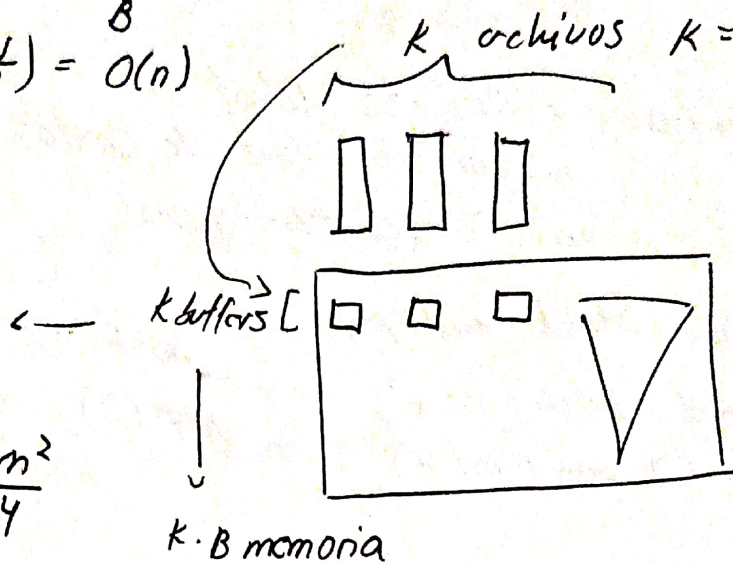 B
k achivos k =
) = O(n)
k buffers [
n²
4
k.B memoria